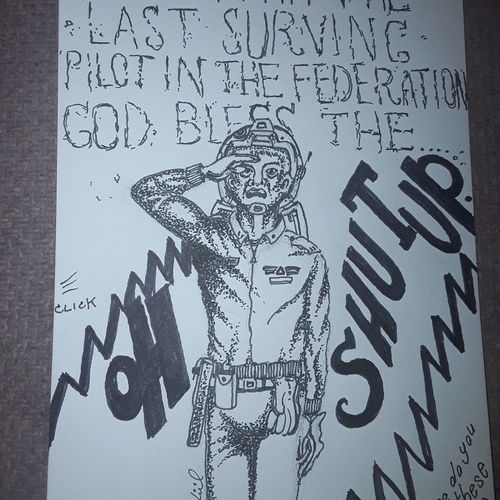 THE
LAST SURVING
PILOT IN THE FEDERATION
GOD. BLESS THE....
SHUT UP.
CLICK
OH
do you
these